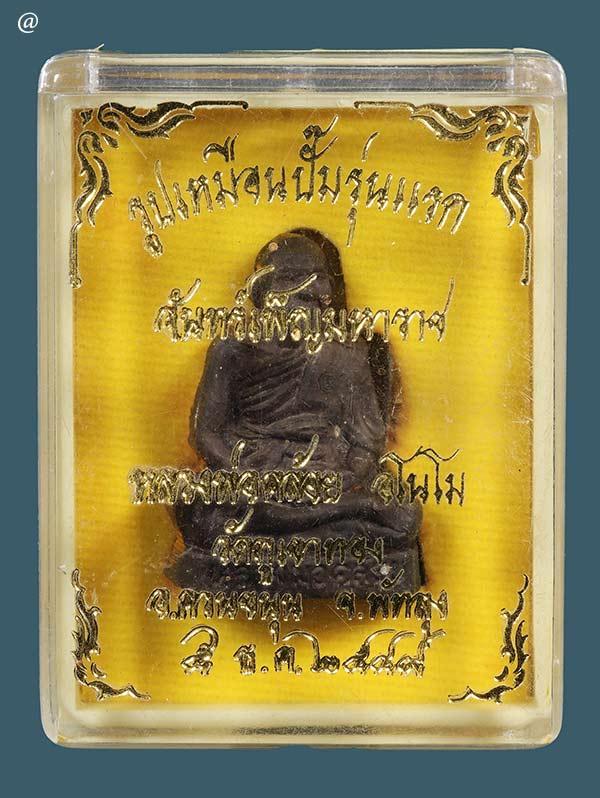 @
รูปเหมือนปั๊มรุ่นแรก
จันทร์เพ็ญมหาราช
หลวงพ่อคล้อย อโนโม
วัดภูเขาทอง
อ.ควนขนุน จ.พัทลุง
๕ ธ.ค. ๒๕๔๙